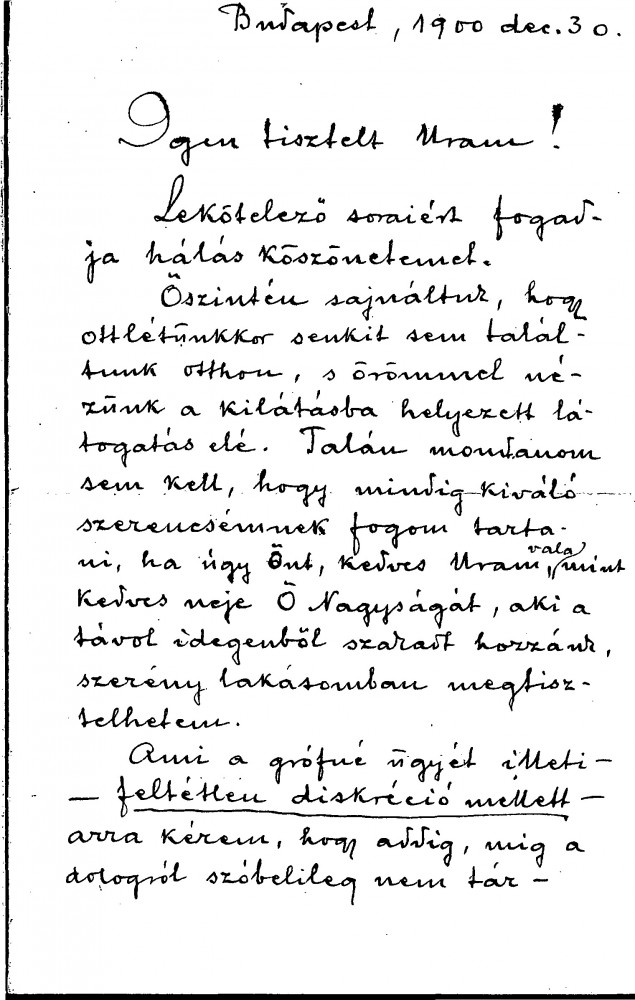 Budapest, 1900 dec. 30.
Igen tisztelt Uram!
Lekötelező soraiért fogad-
ja hálás köszönetemet.
Őszintén sajnáltuk, hogy
ottlétünkkor senkit sem talál-
tunk otthon, s örömmel né-
zünk a kilátásba helyezett lá-
togatás elé. Talán mondanom
sem kell, hogy mindig kiváló
szerencsémnek fogom tarta-
ni, ha úgy Önt, kedves Uram, vala mint
kedves neje Ő Nagyságát, aki a
távol idegenből szakadt hozzánk,
szerény lakásomban megtisz-
telhetem.
Ami a grófné ügyét illeti –
– feltétlen diskréció mellett –
arra kérem, hogy addig, mig a
dologról szóbelileg nem tár-